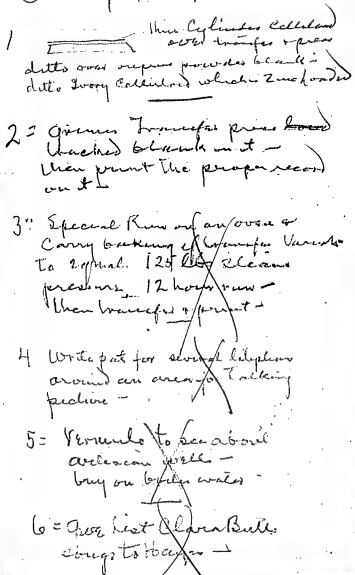 1 thin Cylinder Celluloid
over transfer & press
ditto over repress powder blank -
ditto Ivory Celluloid which is Zinc loaded
2 = Transfer press
blank on it -
then print the proper record
on it -
3" Special Run of an oven &
Carry baking of transfer Varnish
to equal 125 lbs Steam
pressure 12 hours run -
then transfer & print -
4 Write pat for several telephones
around an area for Talking
picture -
5 = to see about
artesian well -
buy on boiler water -
6 = Give List Clara Butt
songs to Hayes -